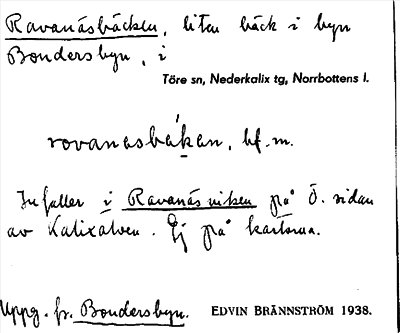 Ravanäsbäcken, liten bäck i byn
Bondersbyn, i
Töre sn, Nederkalix tg, Norrbottens l.
rovanasbákan, bf. m.
Infaller i Ravanäsviken på Ö. sidan
av Kalixälven. Ej på kartorna.
Uppg. fr. Bondersbyn. EDVIN BRÄNNSTRÖM 1938.